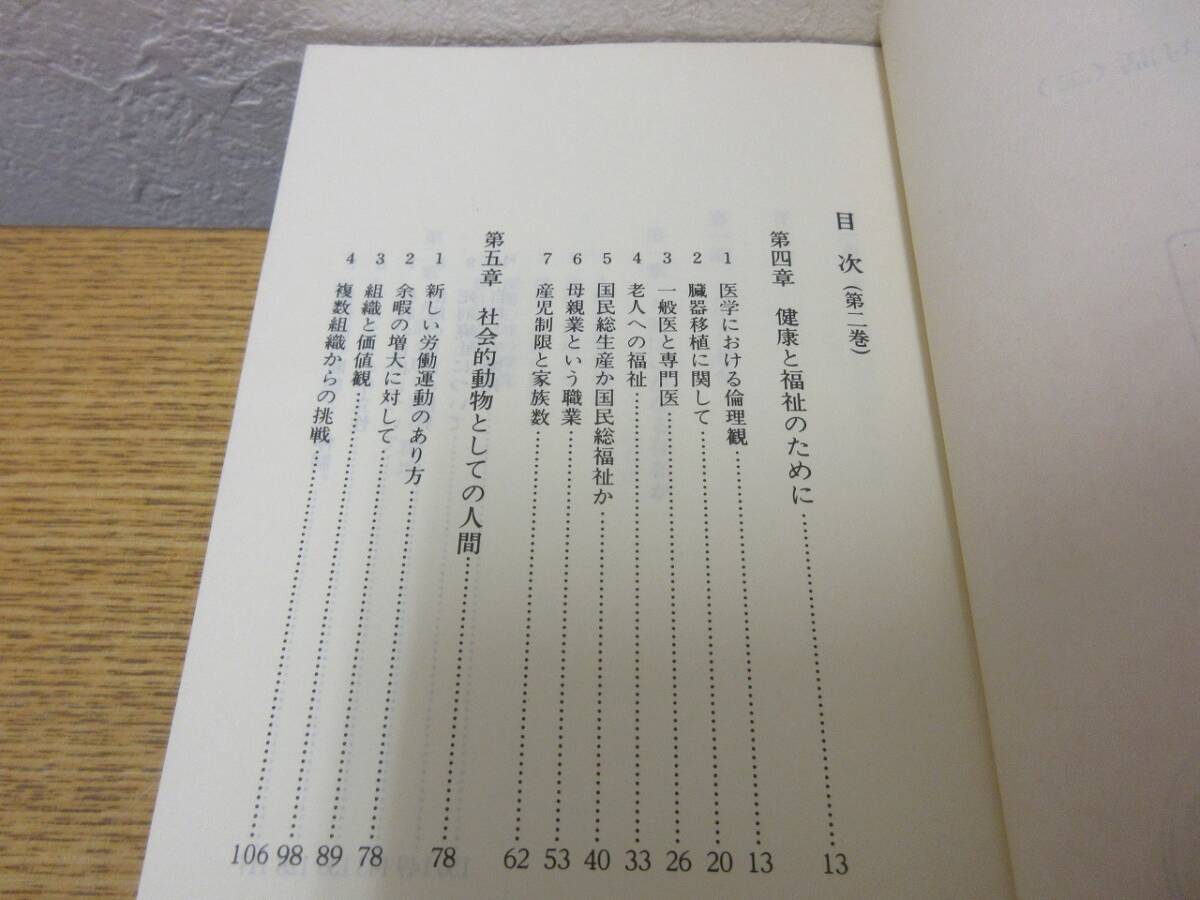 目次（第二巻）
第四章　健康と福祉のために……………………13
1　医学における倫理観……………………13
2　臓器移植に関して……………………20
3　一般医と専門医……………………26
4　老人への福祉……………………33
5　国民総生産か国民総福祉か……………………40
6　母親業という職業……………………53
7　産児制限と家族数……………………62
第五章　社会的動物としての人間……………………78
1　新しい労働運動のあり方……………………78
2　余暇の増大に対して……………………89
3　組織と価値観……………………98
4　複数組織からの挑戦……………………106